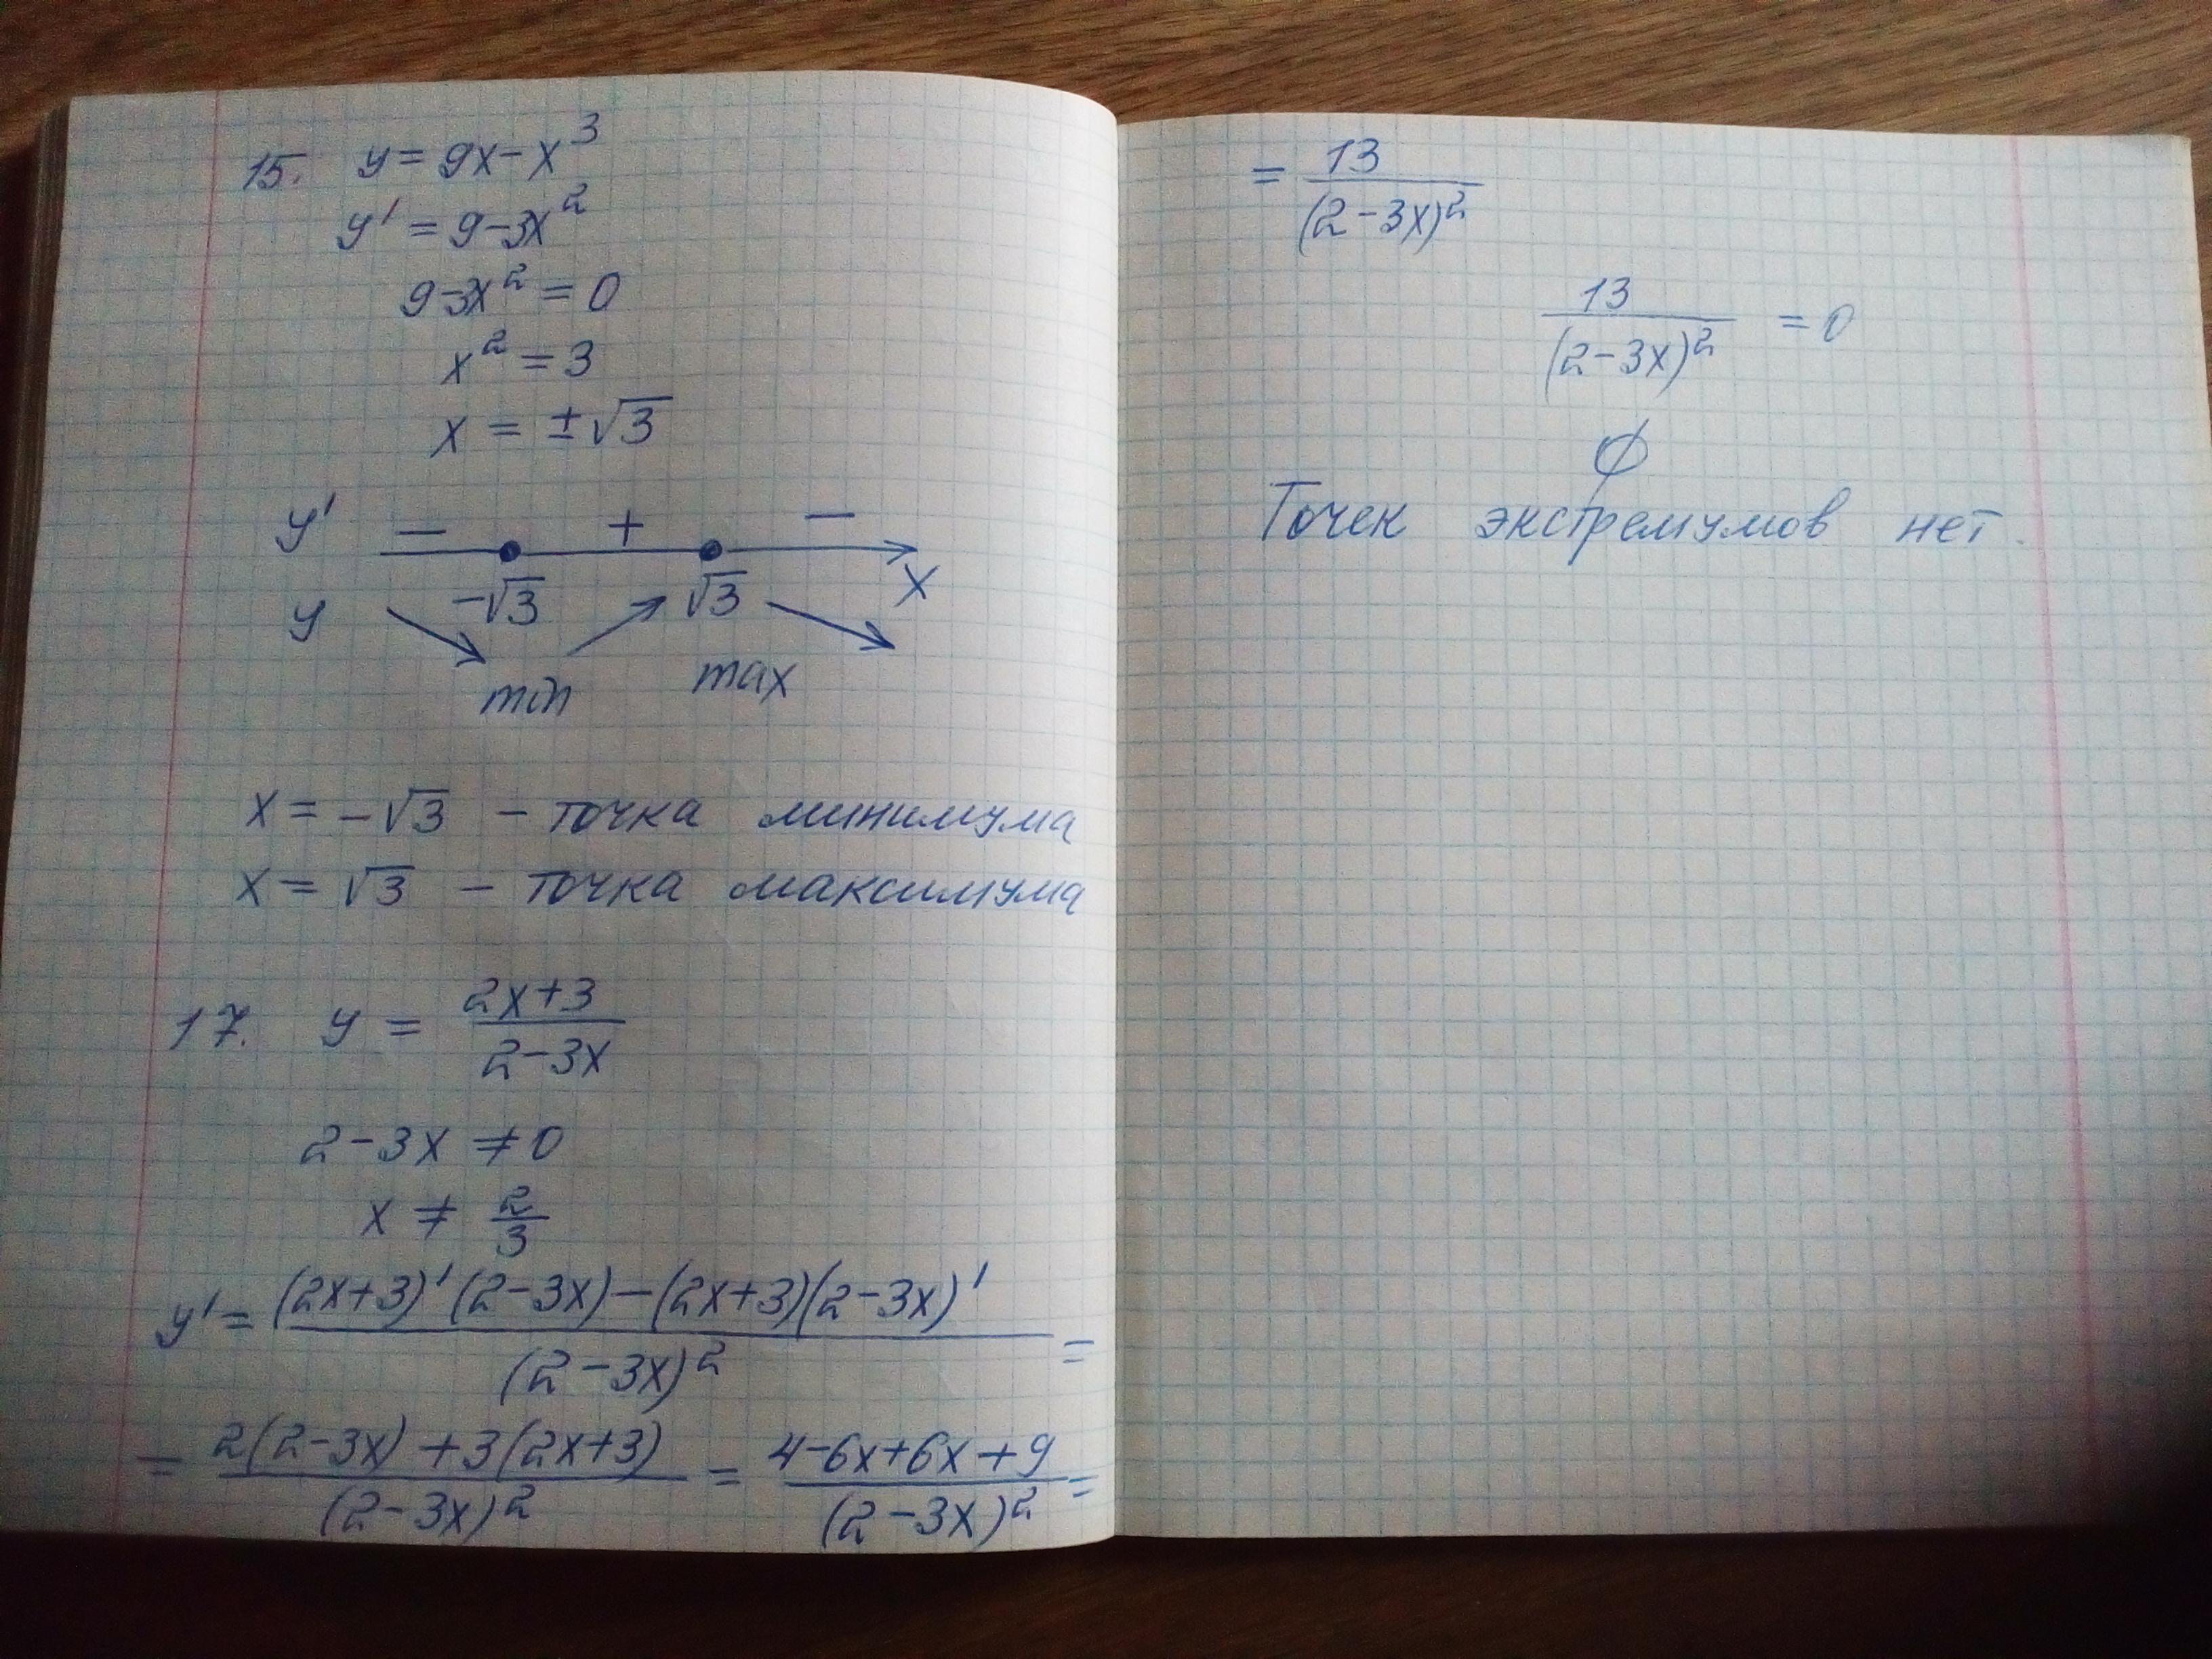 15. y = 9x - x³
y' = 9 - 3x²
9 - 3x² = 0
x² = 3
x = ±√3
y' − + −
-√3 √3 x
y
min max
x = -√3 - точка минимума
x = √3 - точка максимума
17. y = (2x+3)/(2-3x)
2 - 3x ≠ 0
x ≠ 2/3
y' = ((2x+3)'(2-3x) - (2x+3)(2-3x)')/(2-3x)² =
= (2(2-3x) + 3(2x+3))/(2-3x)² = (4-6x+6x+9)/(2-3x)² =
= 13/(2-3x)²
13/(2-3x)² = 0
∅
Точек экстремумов нет.